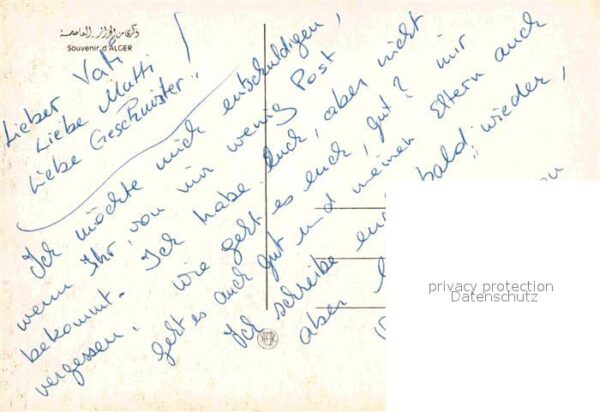 ذكرى من الجزائر العاصمة
Souvenir d'ALGER
Lieber Vati
Liebe Mutti
Liebe Geschwister!
Ich möchte mich entschuldigen,
wenn Ihr, von mir wenig Post
bekommt. Ich habe Euch, aber nicht
vergessen. wie geht es euch, gut? mir
geht es auch gut und meinen Eltern auch
Ich schreibe bald wieder,
aber
privacy protection
Datenschutz